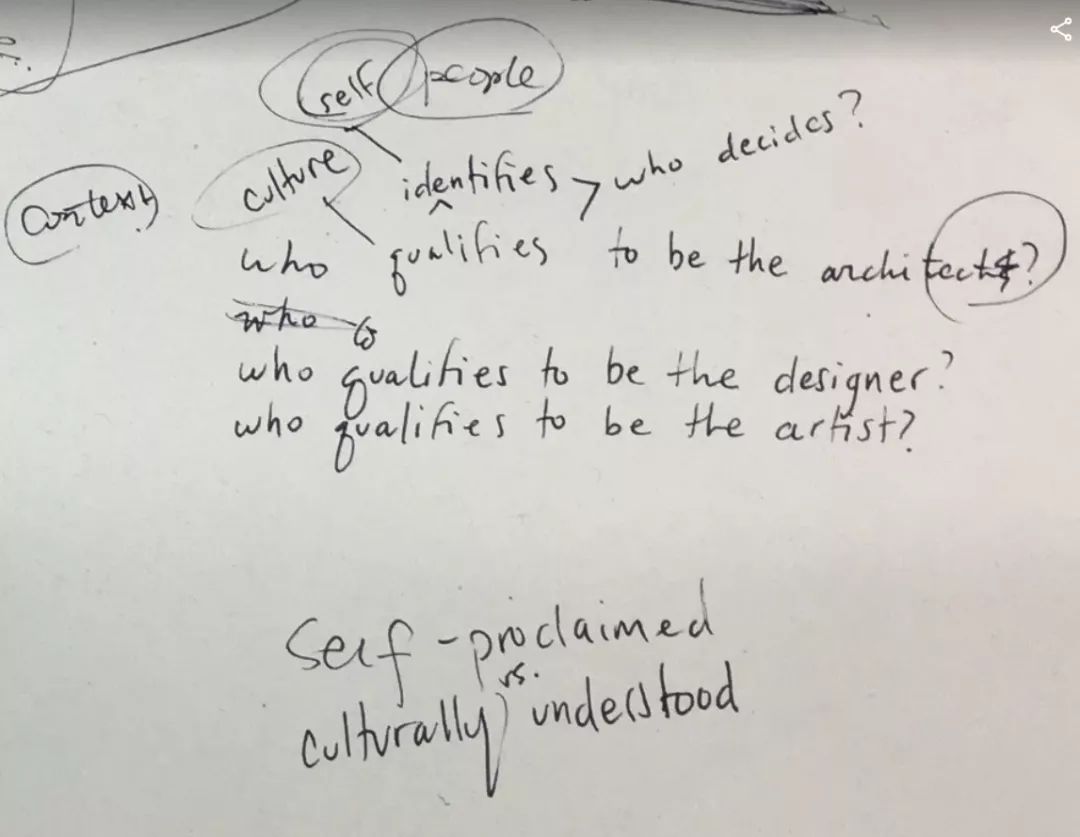 self people
culture identifies > who decides?
context
who qualifies to be the architect?
who
who qualifies to be the designer?
who qualifies to be the artist?
Self-proclaimed
vs.
culturally understood